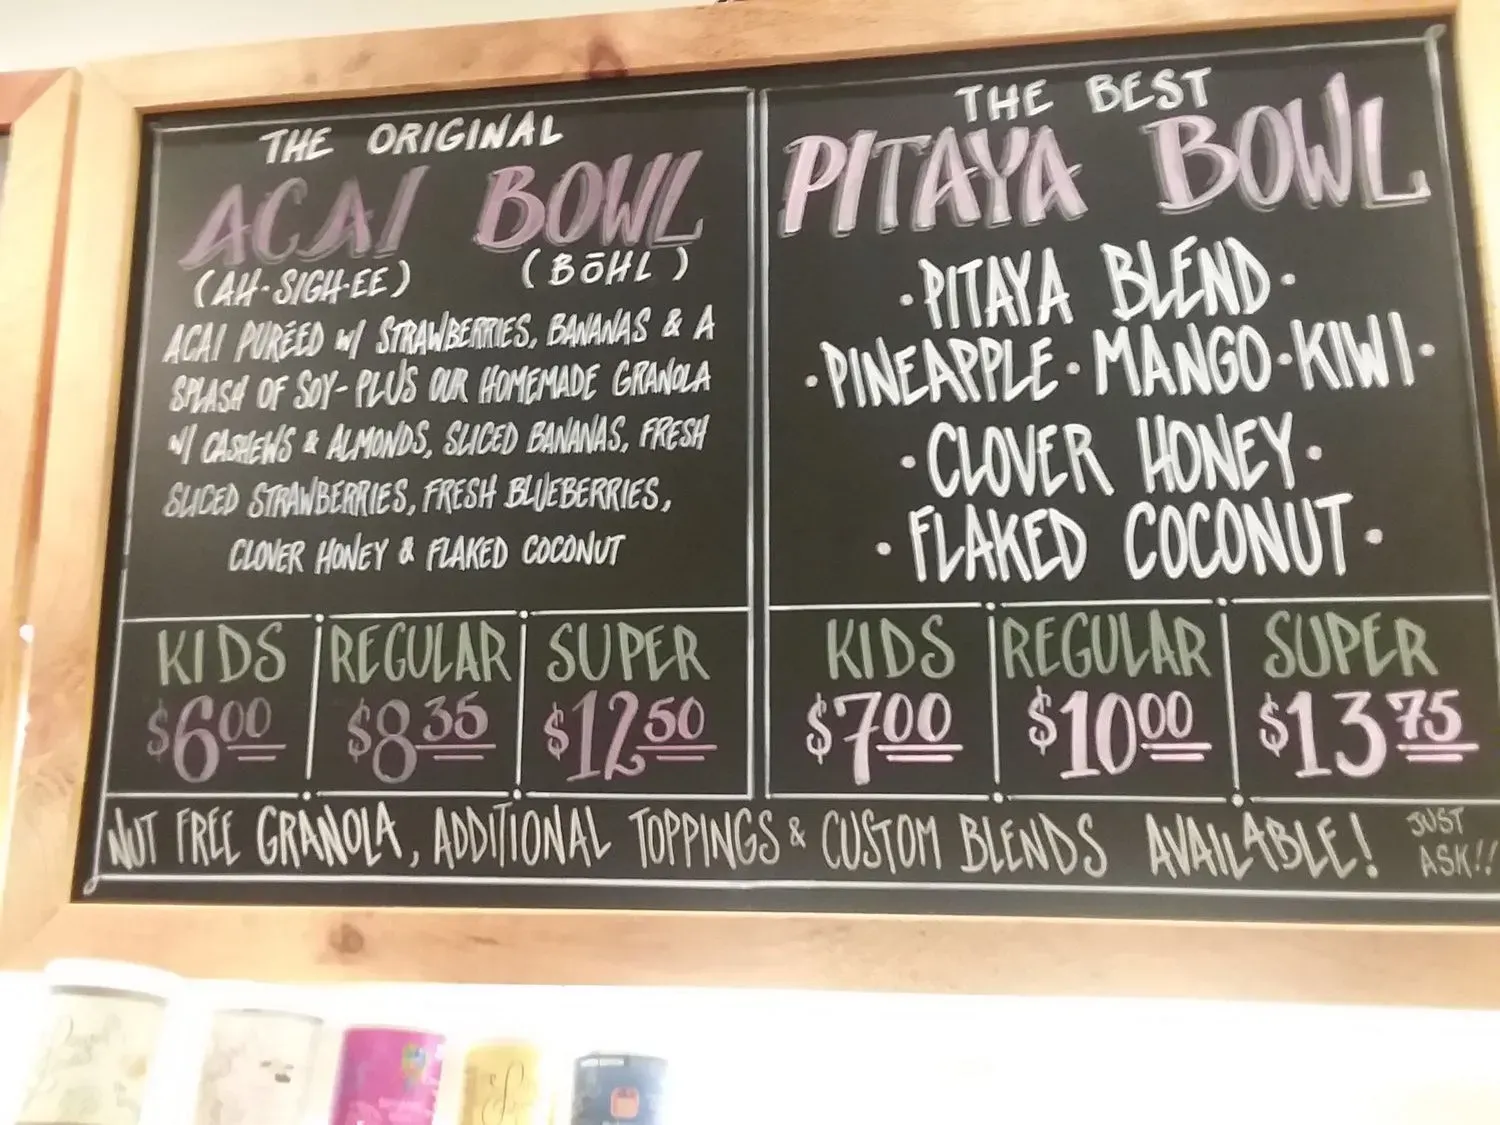 THE ORIGINAL
ACAI BOWL
(AH·SIGH·EE) (BŌHL)
ACAI PURÉED W/ STRAWBERRIES, BANANAS & A
SPLASH OF SOY- PLUS OUR HOMEMADE GRANOLA
W/ CASHEWS & ALMONDS, SLICED BANANAS, FRESH
SLICED STRAWBERRIES, FRESH BLUEBERRIES,
CLOVER HONEY & FLAKED COCONUT
KIDS REGULAR SUPER
$600 $835 $1250
THE BEST
PITAYA BOWL
·PITAYA BLEND·
·PINEAPPLE·MANGO·KIWI·
·CLOVER HONEY·
·FLAKED COCONUT·
KIDS REGULAR SUPER
$700 $1000 $1375
NUT FREE GRANOLA, ADDITIONAL TOPPINGS & CUSTOM BLENDS AVAILABLE! JUST
ASK!!